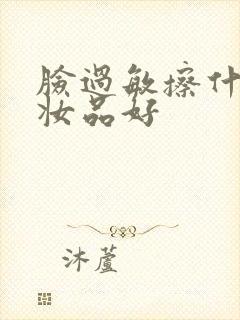 臉過敏擦什
妝品好
沐蘆